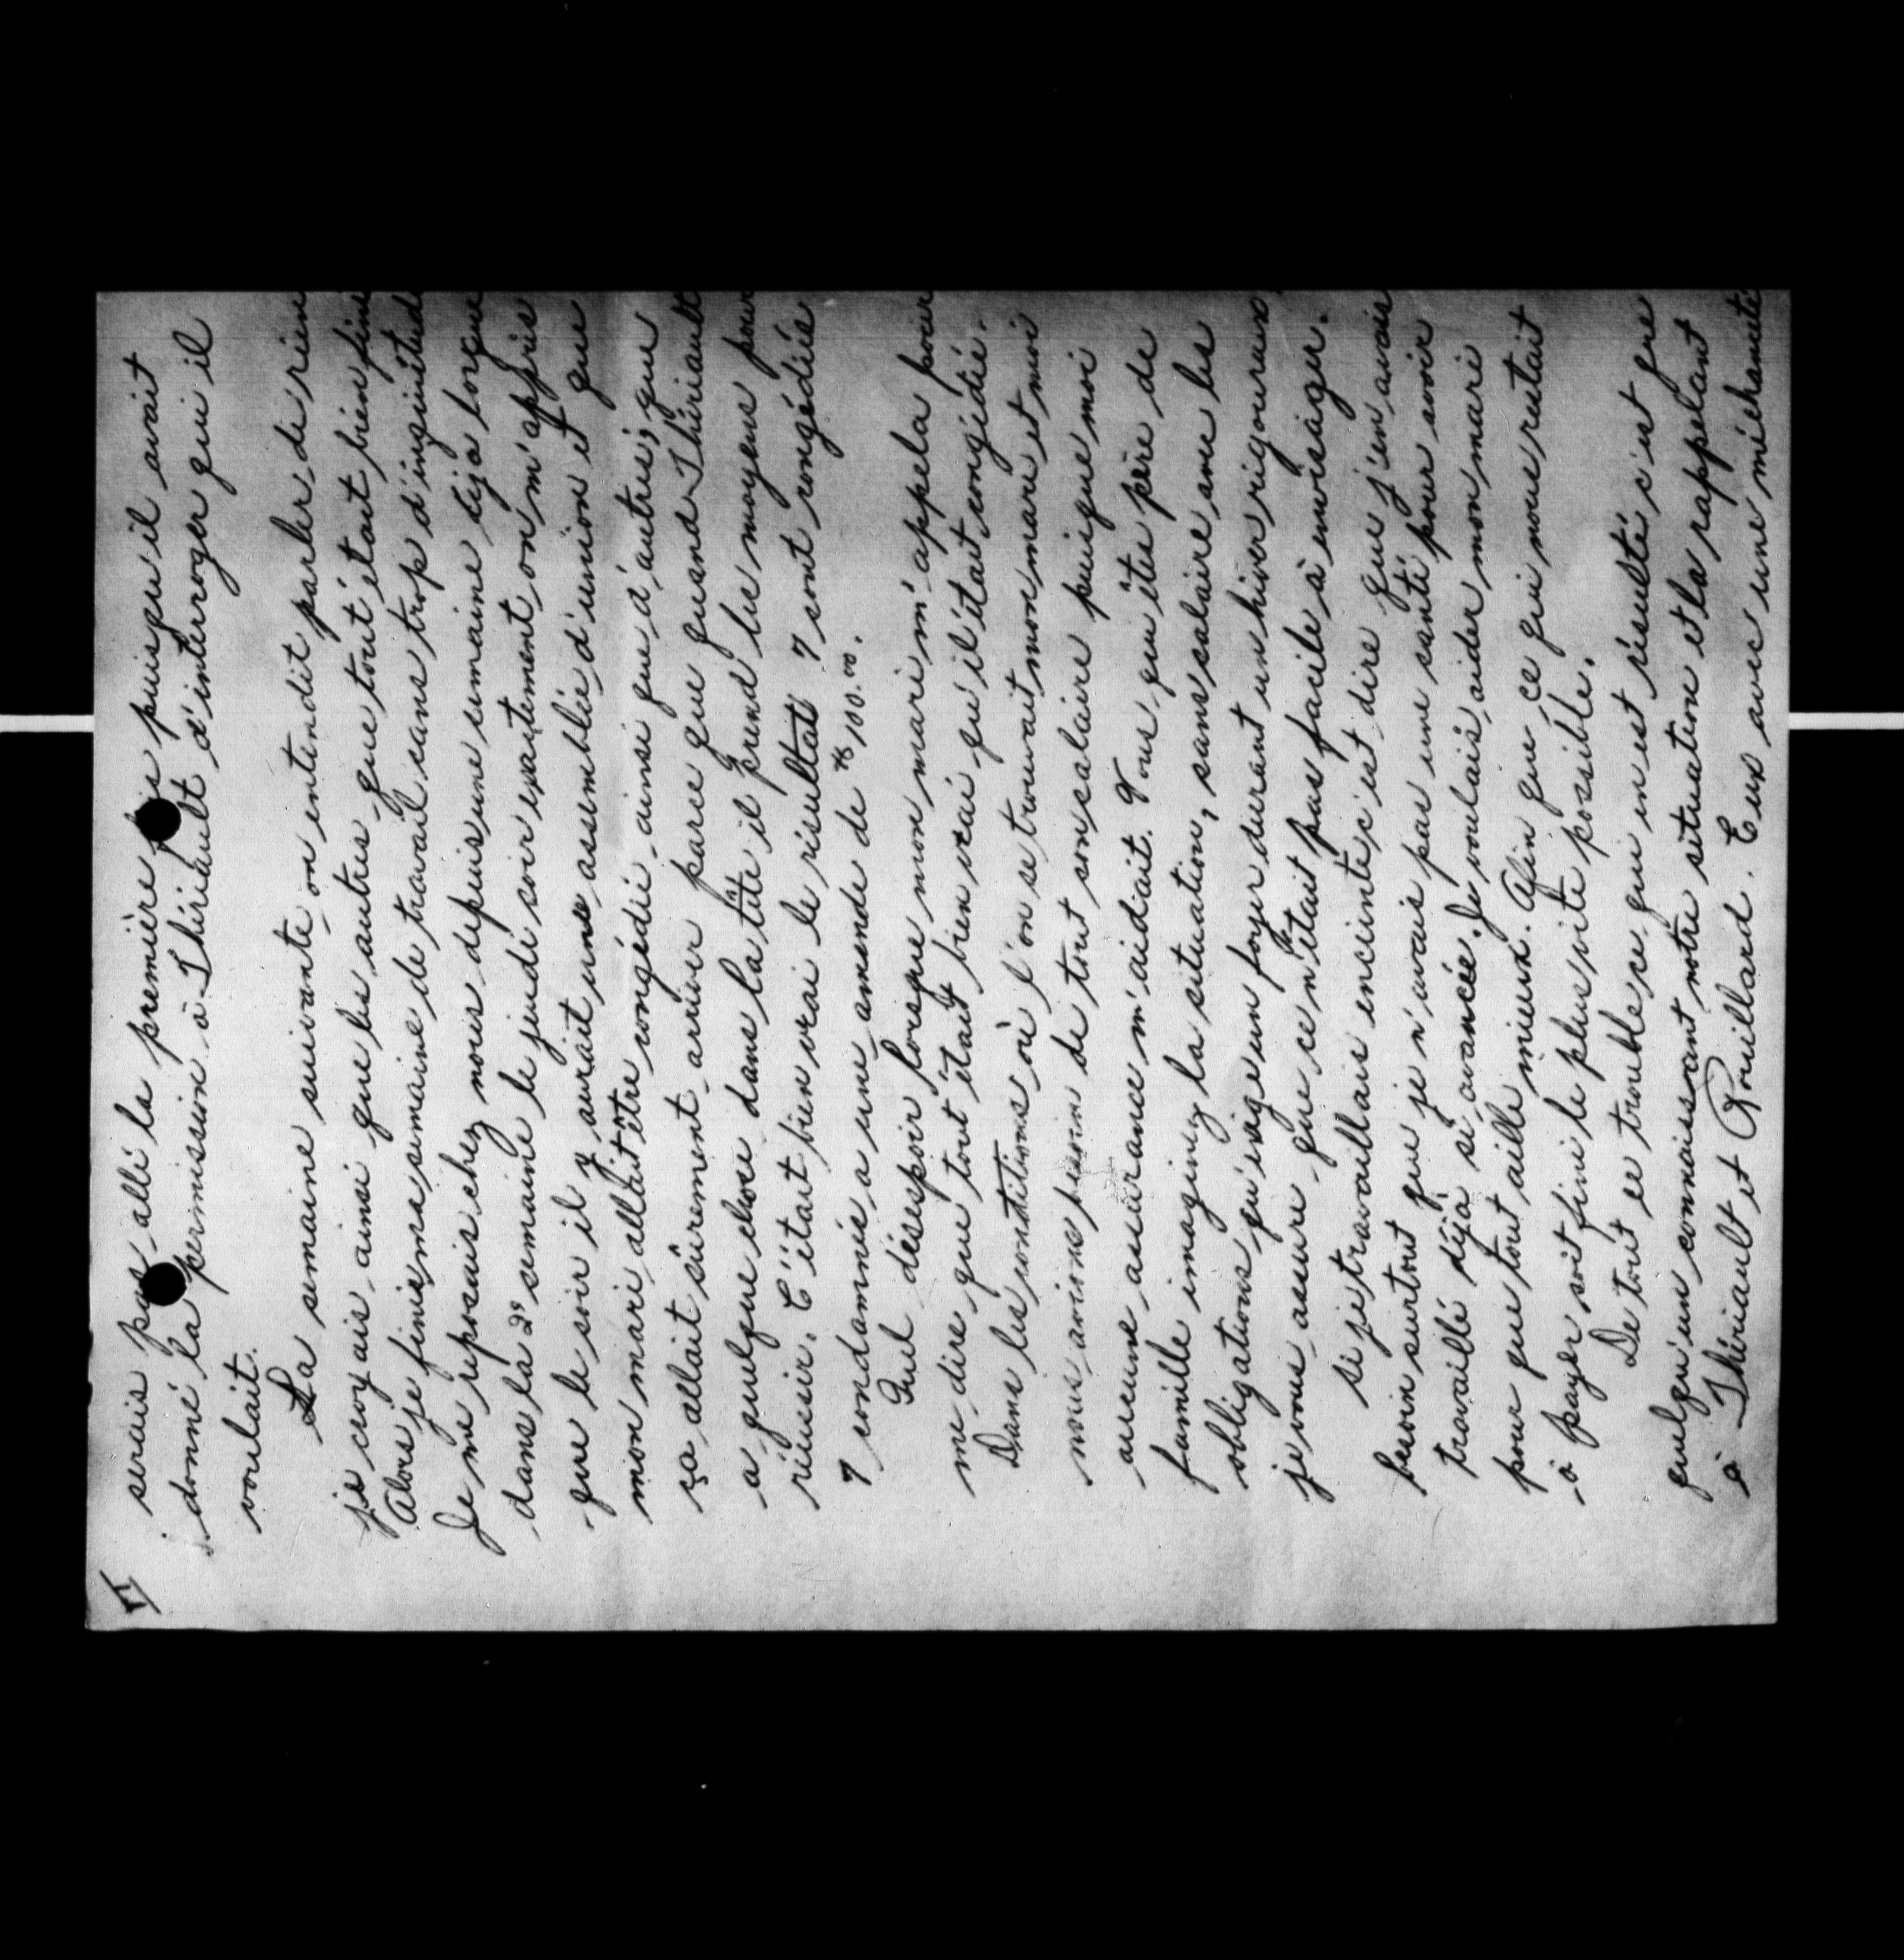 V
serais pas allé la première fois puisqu'il avait
donné la permission à Thériault d'interroger qui il
voulait.
La semaine suivante on entendit parler de rien
je croyais ainsi que les autres que tout était bien fini
Alors je finis ma semaine de travail sans trop d'inquiétude
Je me reposais chez nous depuis une semaine déjà lorque
dans la 2e semaine le jeudi soir exactement on m'appris
que le soir il y aurait une assemblée d'union et que
mon mari allait être congédié ainsi que d'autres; que
ça allait sûrement arriver parce que quand Thériault
a quelque chose dans la tête il prend les moyens pour
réussir. C'était bien vrai le résultat 7 sont congédiés
7 condamnés a une amende de $100.00.
Quel désespoir lorsque mon mari m'appela pour
me dire que tout était bien vrai qu'il était congédié.
Dans les conditions où l'on se trouvait mon mari et moi
nous avions besoin de tout son salaire puisque moi
aucune assurance m'aidait. Vous qui êtes père de
famille imaginez la situation, sans salaire avec les
obligations qu'exige un foyer durant un hiver rigoureux
je vous assure que ce n'était pas facile à envisager.
si je travaillais enceinte c'est dire que j'en avais
besoin surtout que je n'avais pas une santé pour avoir
travaillé déjà si avancée. Je voulais aider mon mari
pour que tout aille mieux. Afin que ce qui nous restait
à payer soit fini le plus vite possible.
De tout ce trouble ce qui en est résulté c'est que
quelqu'un connaissant notre situation et la rappelant
à Thériault et Rouillard. Eux avec une méchanceté